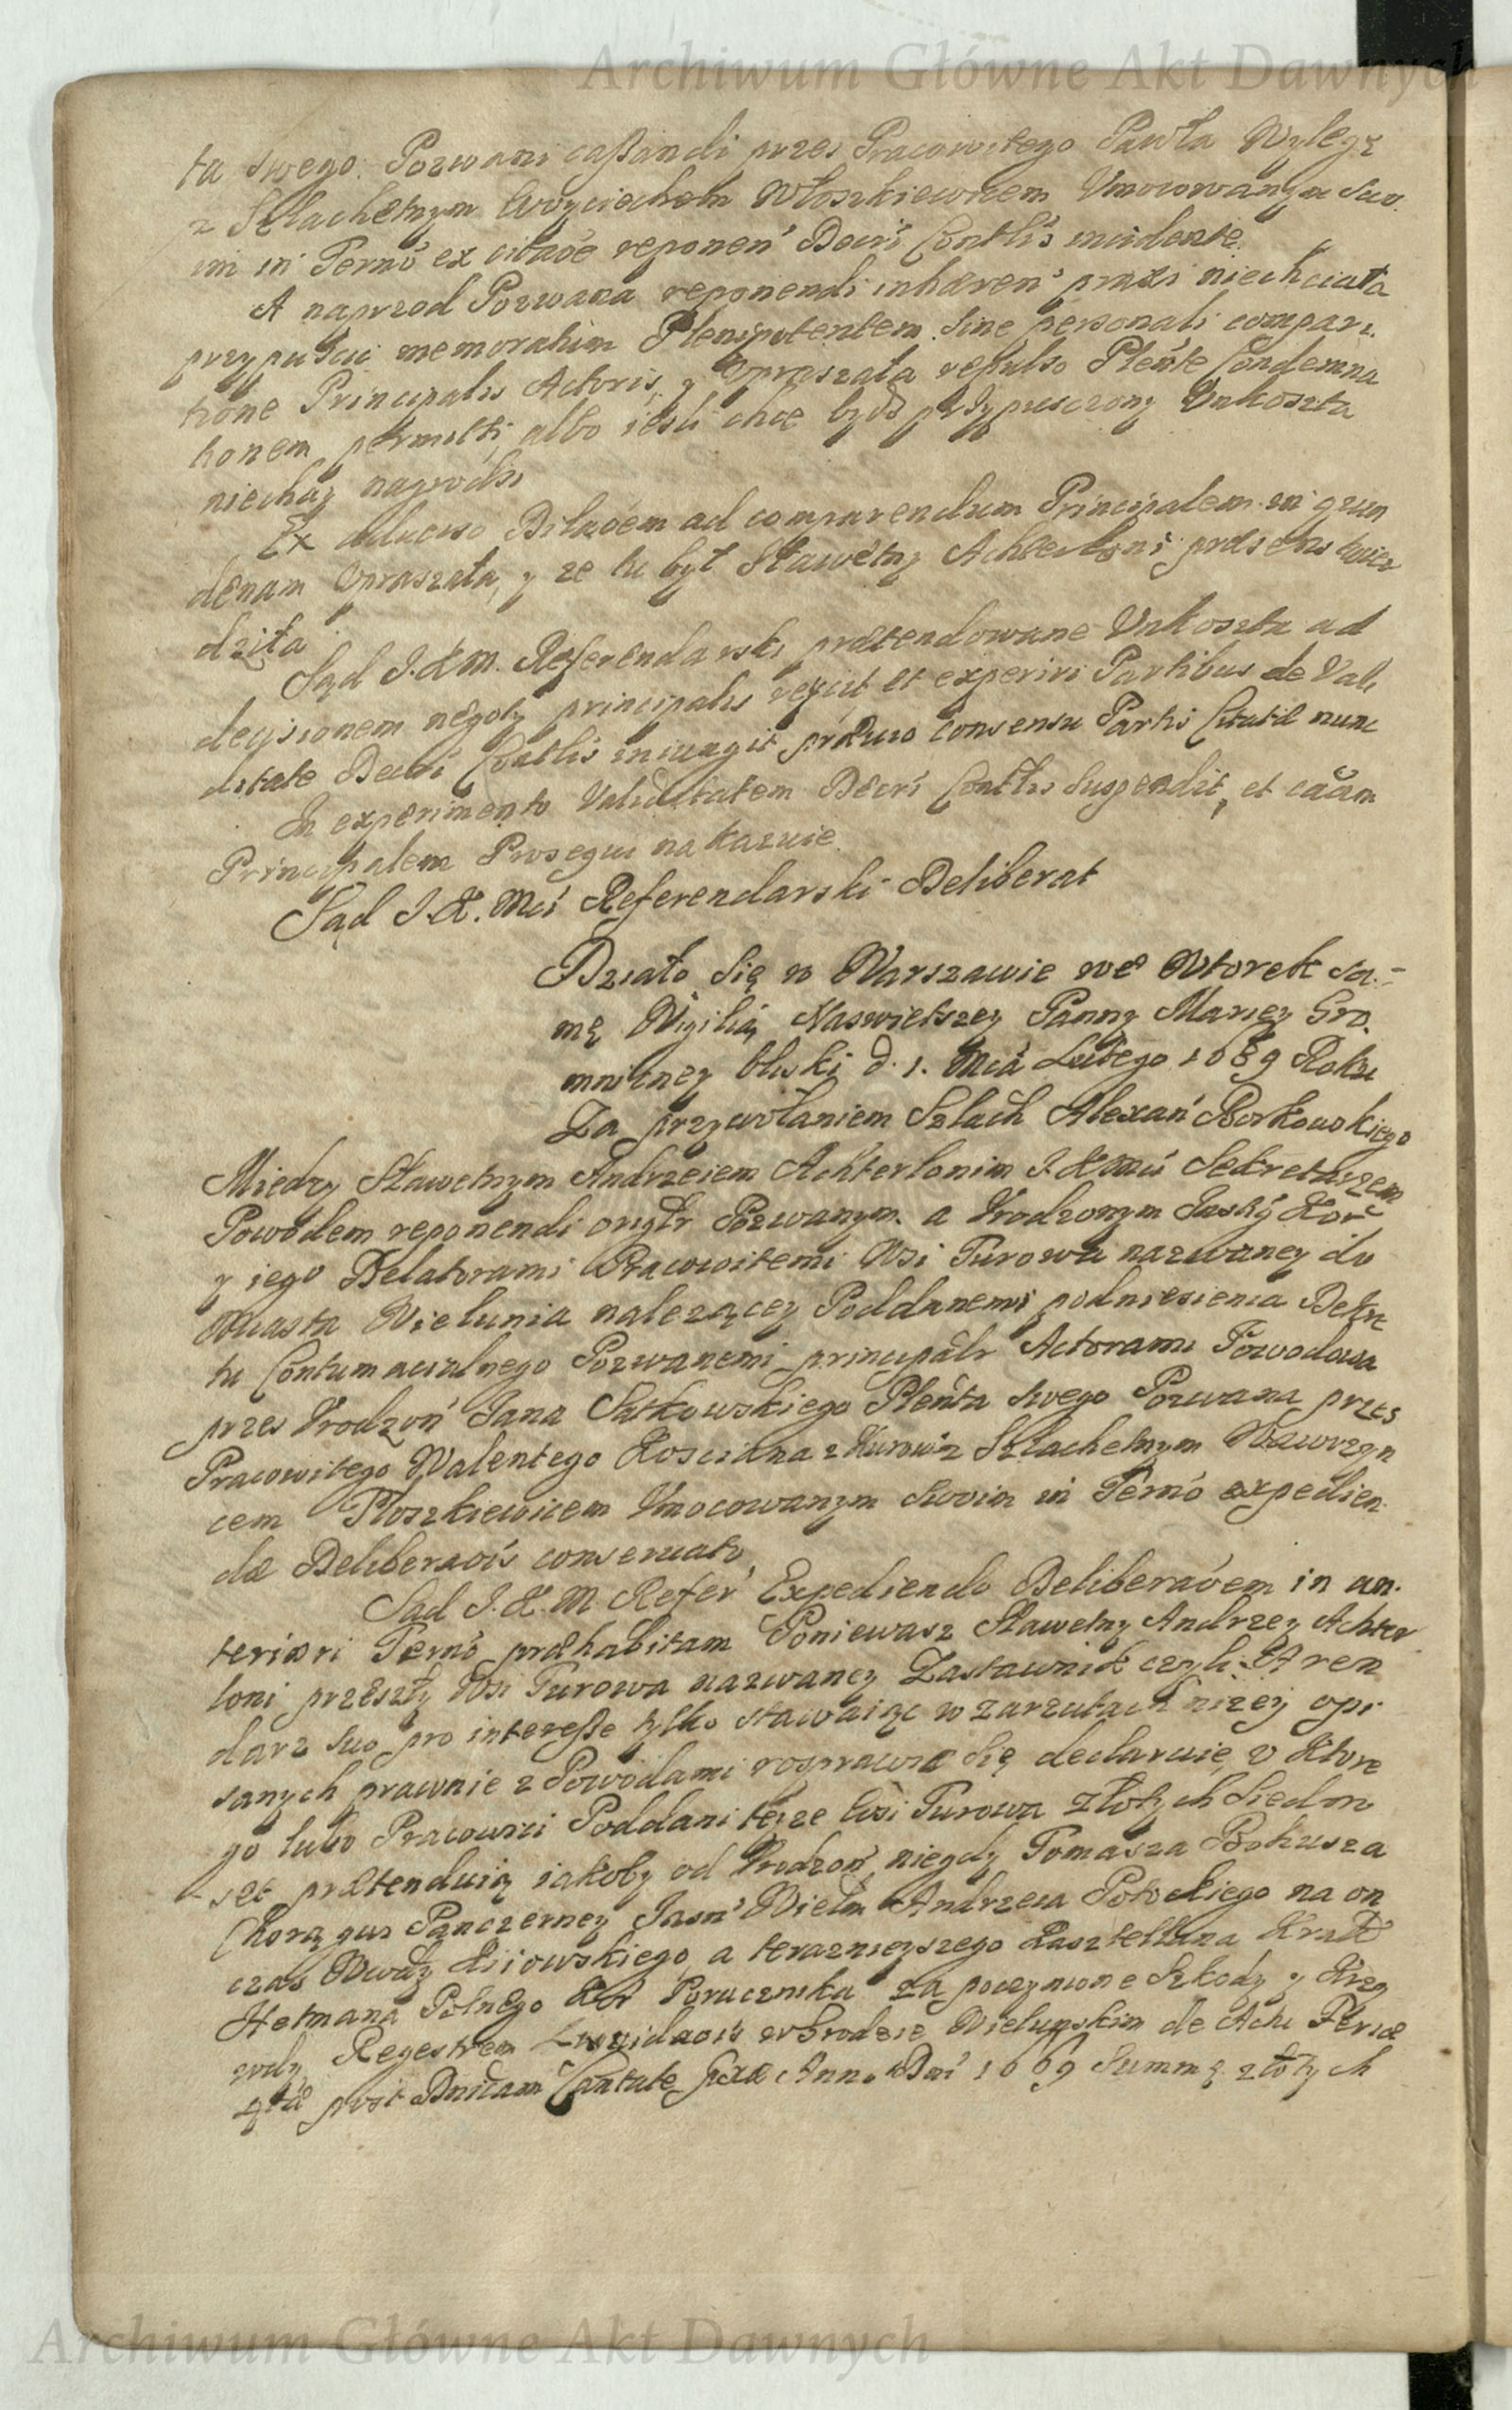 Archiwum Główne Akt Dawnych
ta swego. Pozwani caßandi przez Pracowitego Pawła
z Szlachetnym Woyciechem Włoszkiewicem Vmocowanym Swo
im in Termo ex citaõe reponeñ Decri Contlis incidente.
A naprzod Pozwana reponendi inhæreñ praxi niechciała
przypuscic memoratum Plenipotentem Sine personali compari
tione Principalis Actoris, y vpraszała repulso Pleñte Condemna
tionem permitti, albo iesli chce bydz przypusczony Vnkoszta
niechay nagrodzi
Ex adverso Dilaõem ad comparendum Principalem
denam vpraszała, y ze tu był Sławetny Achterloni præsens twier
dziła
Sąd J.K.M. Referendarski prætendowane Vnkoszta ad
decisionem negoty principalis reycit et experiri Partibus de Vali
ditate Decri Contlis iniungit prævio consensu Partis Citatæ nunc
In experimento Validitatem Decri Contlis Suspendit, et caãm
Principalem Prosequi nakazuie.
Sąd J.K.Mci Referendarski Deliberat
Działo Się w Warszawie we Wtorek sa-
mę Wigilią Naswietszey Panny Maryey Gro
mniczney bliski d. 1. Mca Lutego 1689 Roku
Za przywołaniem Szlach Alexañ Borkowskiego
Miedzy Sławetnym Andrzeiem Achterlonim J.K.Mci Sekretarzem
Powodem reponendi Pozwanym. a Vrodzonym
y iego Delatorami Pracowitemi Wsi Turowa nazwaney do
Miasta Wielunia nalezącey Poddanemi podniesienia Dekre
tu Contumacialnego Pozwanemi principalr Actorami Powodowa
przez Vrodzoñ Jana Sulkowskiego Pleñta swego Pozwana przes
Pracowitego Walentego Kosciana z Szlachetnym Wawrzyn
cem Floszkiewicem Vmocowanym Swoim in Termo expedien
dæ Deliberaõis conservato
Sąd J.K.M Refer Expediendo Deliberaõem in an-
teriori Termo præhabitam Poniewasz Sławetny Andrzey Achter
loni przeszły Wsi Turowa nazwaney Zastawnik czyli Aren
darz suo pro intereße tylko stawaiąc w zarzutach nizey opi
sanych prawnie z Powodami rosprawic się declaruie, v Ktore
go lubo Pracowici Poddani teyze Wsi Turowa złotych Siedm
set prætenduią iakoby od Vrodzoñ niegdy Tomasza Bokusza
Chorągwi Panczerney Jasñ Wielm Andrzeia Potockiego na on
czas Wwdy Kiiowskiego, a terazniejszego Kasztellana Krak
Hetmana Polnego Kor Porucznika za poczynione Szkody y Krzy
wdy Regestrem Liquidaõis w Grodzie Wielunskim de Actu Feria
4ta post Dnicam Cantate Anno Dni 1669 Summę złotych
Archiwum Główne Akt Dawnych